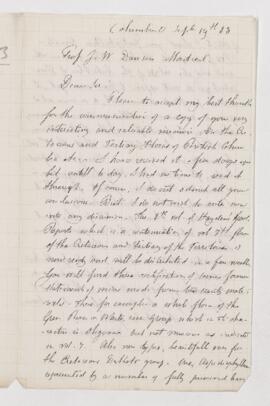 Columbus O Sept 19th 83
Prof J. W. Dawson Montreal.
Dear Sir
Please to accept my best thanks
for the communication of a copy of your very
interesting and valuable memoir On the Cre
taceous and Tertiary Floras of British Colum
bia &c. I have received it a few days ago
but until to day, I had no time to read it
through. Of course, I do not admit all your
conclusions. But I do not wish to enter now
into any discussion. The 8th vol of Hayden
Reports which is a continuation of vol 7th flora
of the Cretaceous and Tertiary of the Territories is
now ready and will be distributed in a few weeks
You will find there rectification of some former
statements of mine made from too scanty mate
rials. There for example a whole flora of the
Green River or White River Group which in its cha
racter is Oligocene but not Miocene as indicated
in vol. 7. Also new types, beautiful ones for
the Cretaceous Dakota group. One, Aspidiophyllum
represented by a number of fully preserved leaves
3